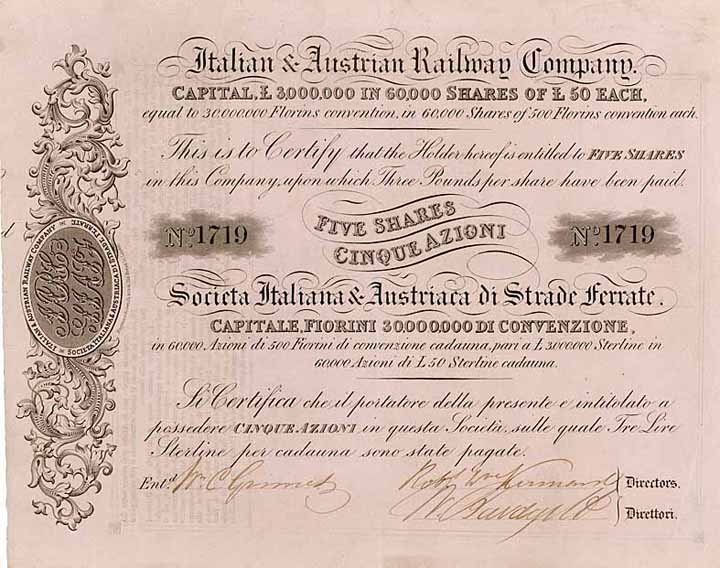 Italian & Austrian Railway Company.
CAPITAL, £ 3,000,000 IN 60,000 SHARES OF £ 50 EACH,
equal to 30.000.000 Florins convention, in 60,000 Shares of 500 Florins convention each.
This is to Certify that the Holder hereof is entitled to FIVE SHARES
in this Company, upon which Three Pounds per share have been paid.
No. 1719
FIVE SHARES
CINQUE AZIONI
No. 1719
Societa Italiana & Austriaca di Strade Ferrate.
CAPITALE, FIORINI 30.000.000 DI CONVENZIONE,
in 60,000 Azioni di 500 Fiorini di convenzione cadauna, pari a £ 3,000,000 Sterline in
60,000 Azioni di £ 50 Sterline cadauna.
Si Certifica che il portatore della presente e intitolato a
possedere CINQUE AZIONI in questa Società, sulle quale Tre Lire
Sterline per cadauna sono state pagate.
Entd. Wm C
Directors.
Direttori.
ITALIAN & AUSTRIAN RAILWAY COMPANY
SOCIETA ITALIANA & AUSTRIACA DI STRADE FERRATE